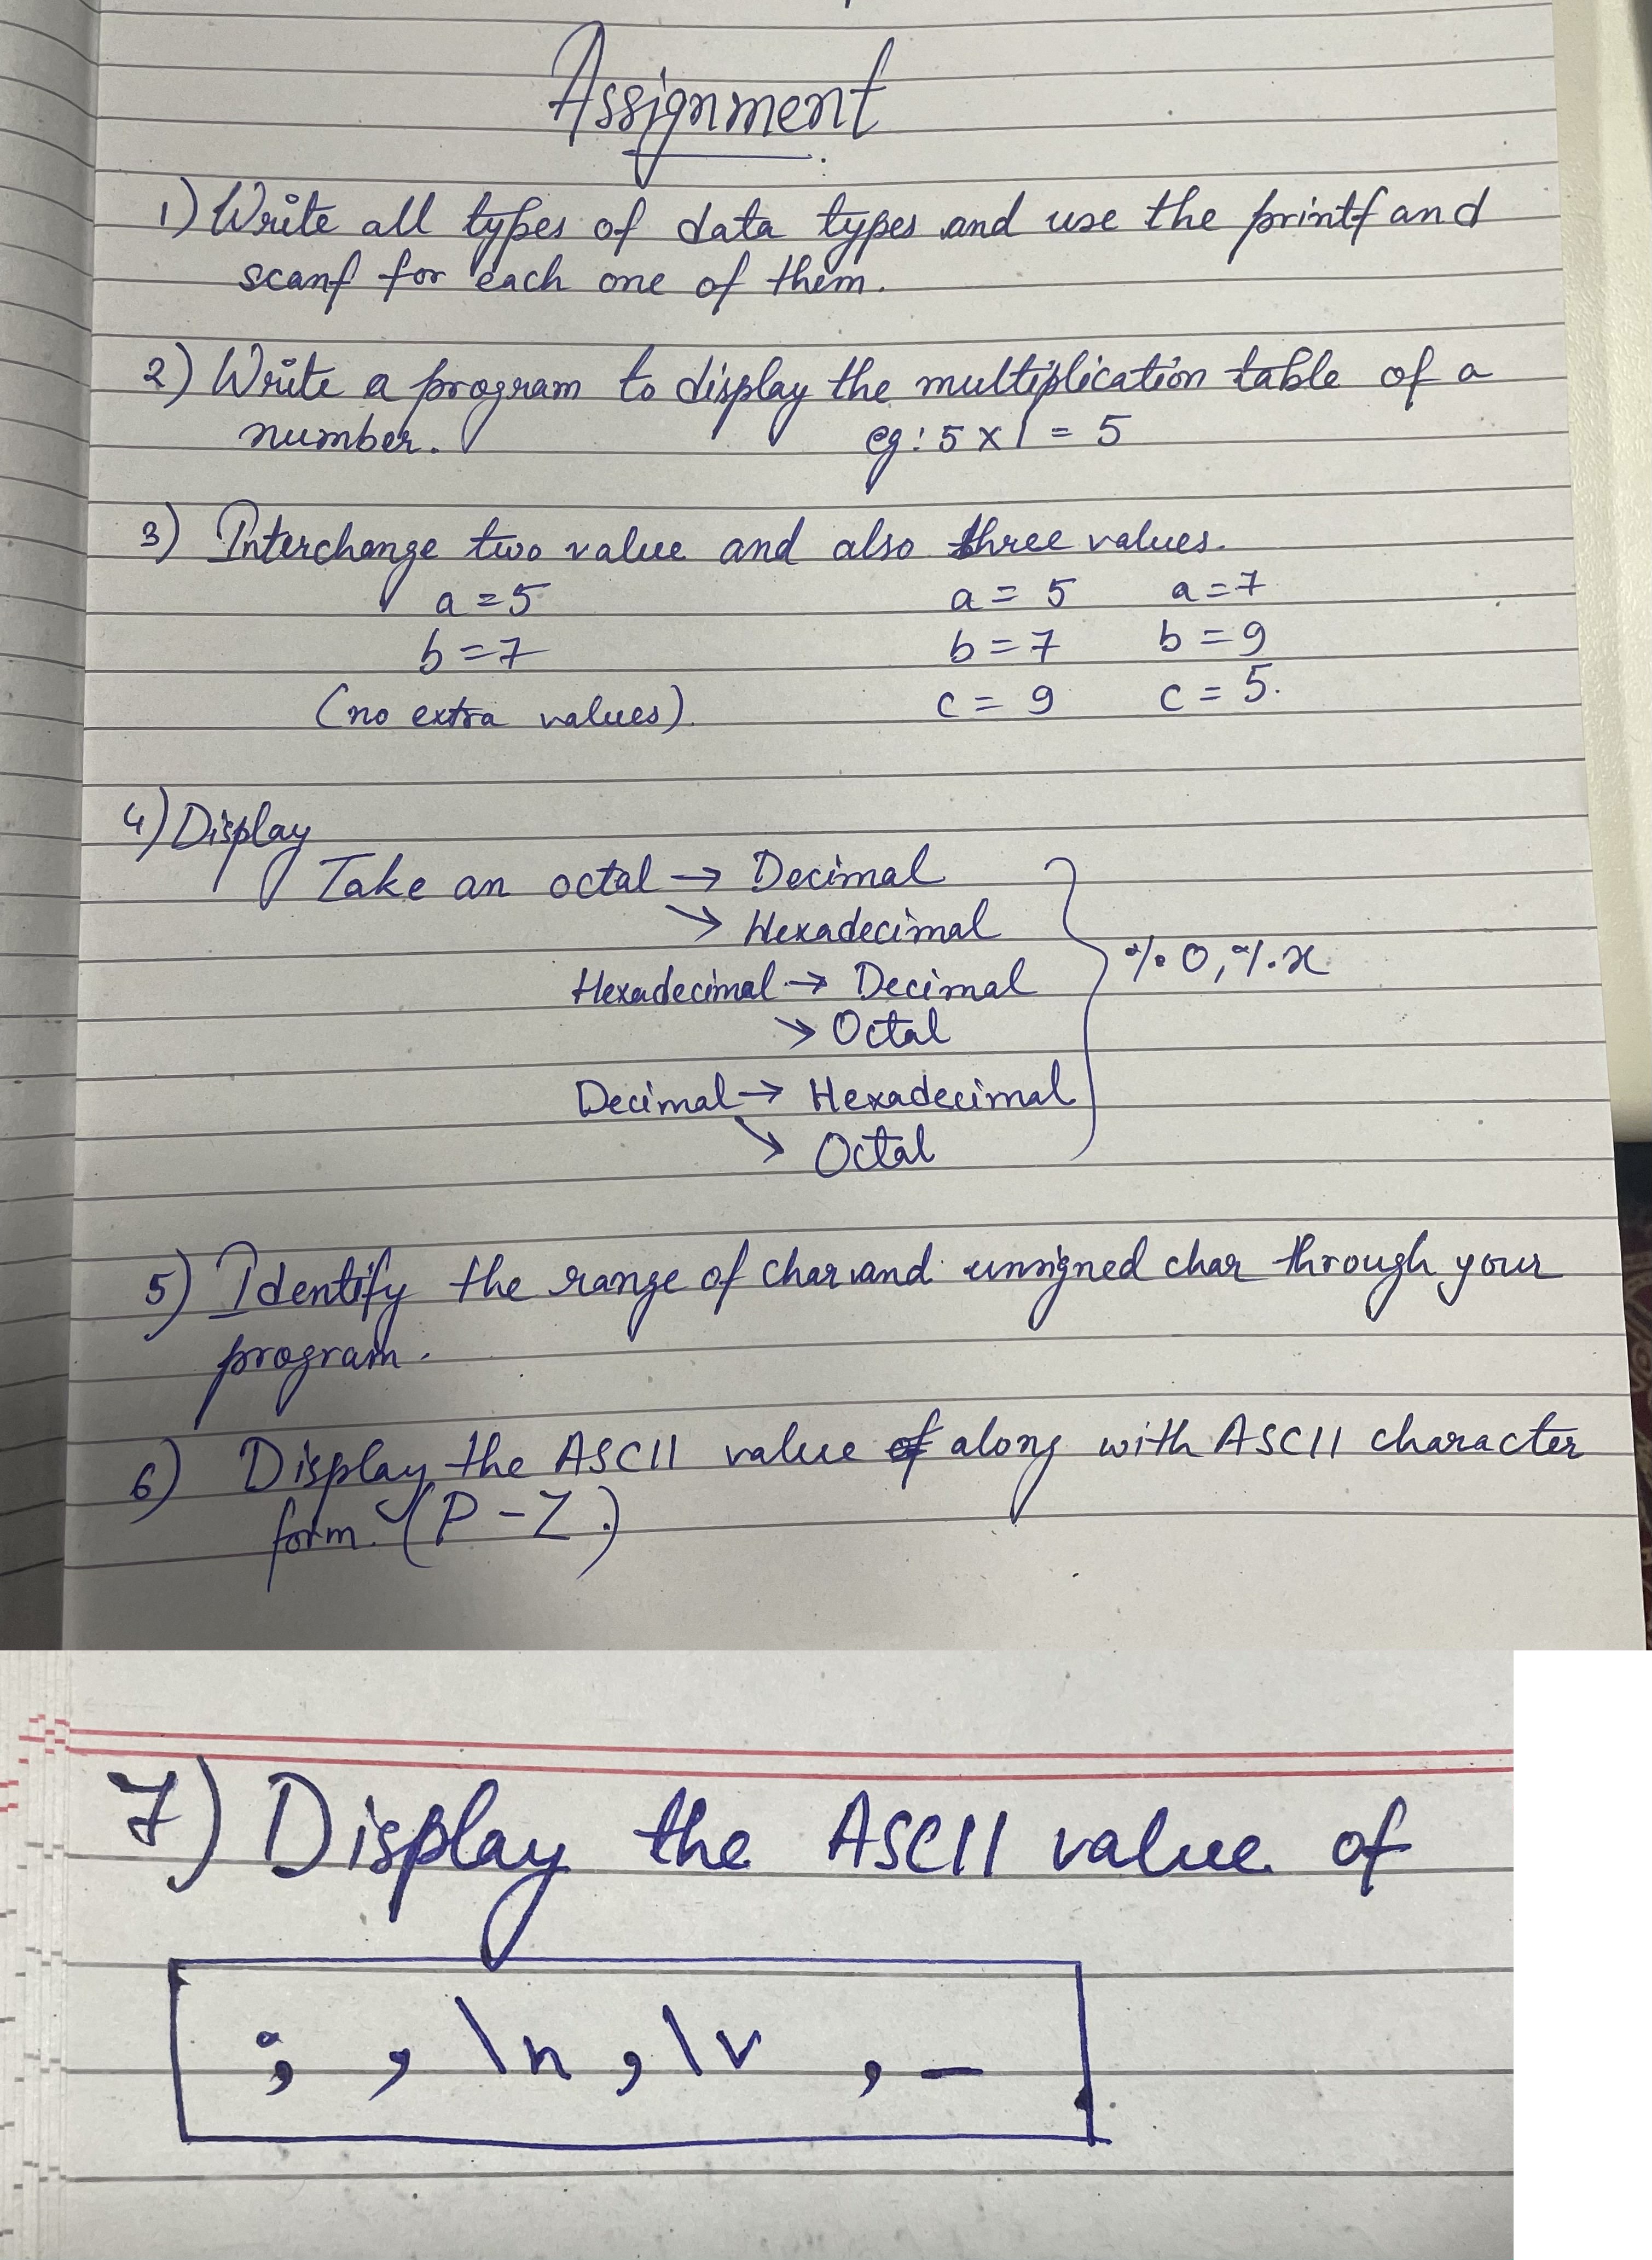 Assignment
1) Write all types of data types and use the printf and
scanf for each one of them.
2) Write a program to display the multiplication table of a
number. eg: 5 x 1 = 5
3) Interchange two value and also three values.
a = 5 a = 5 a = 7
b = 7 b = 7 b = 9
(no extra values). c = 9 c = 5.
4) Display
Take an octal → Decimal
↘ Hexadecimal
%o, %x
Hexadecimal → Decimal
↘ Octal
Decimal → Hexadecimal
↘ Octal
5) Identify the range of char and unsigned char through your
program.
6) Display the ASCII value of along with ASCII character
form. (P - Z.)
7) Display the ASCII value of
; , \n , \v , _